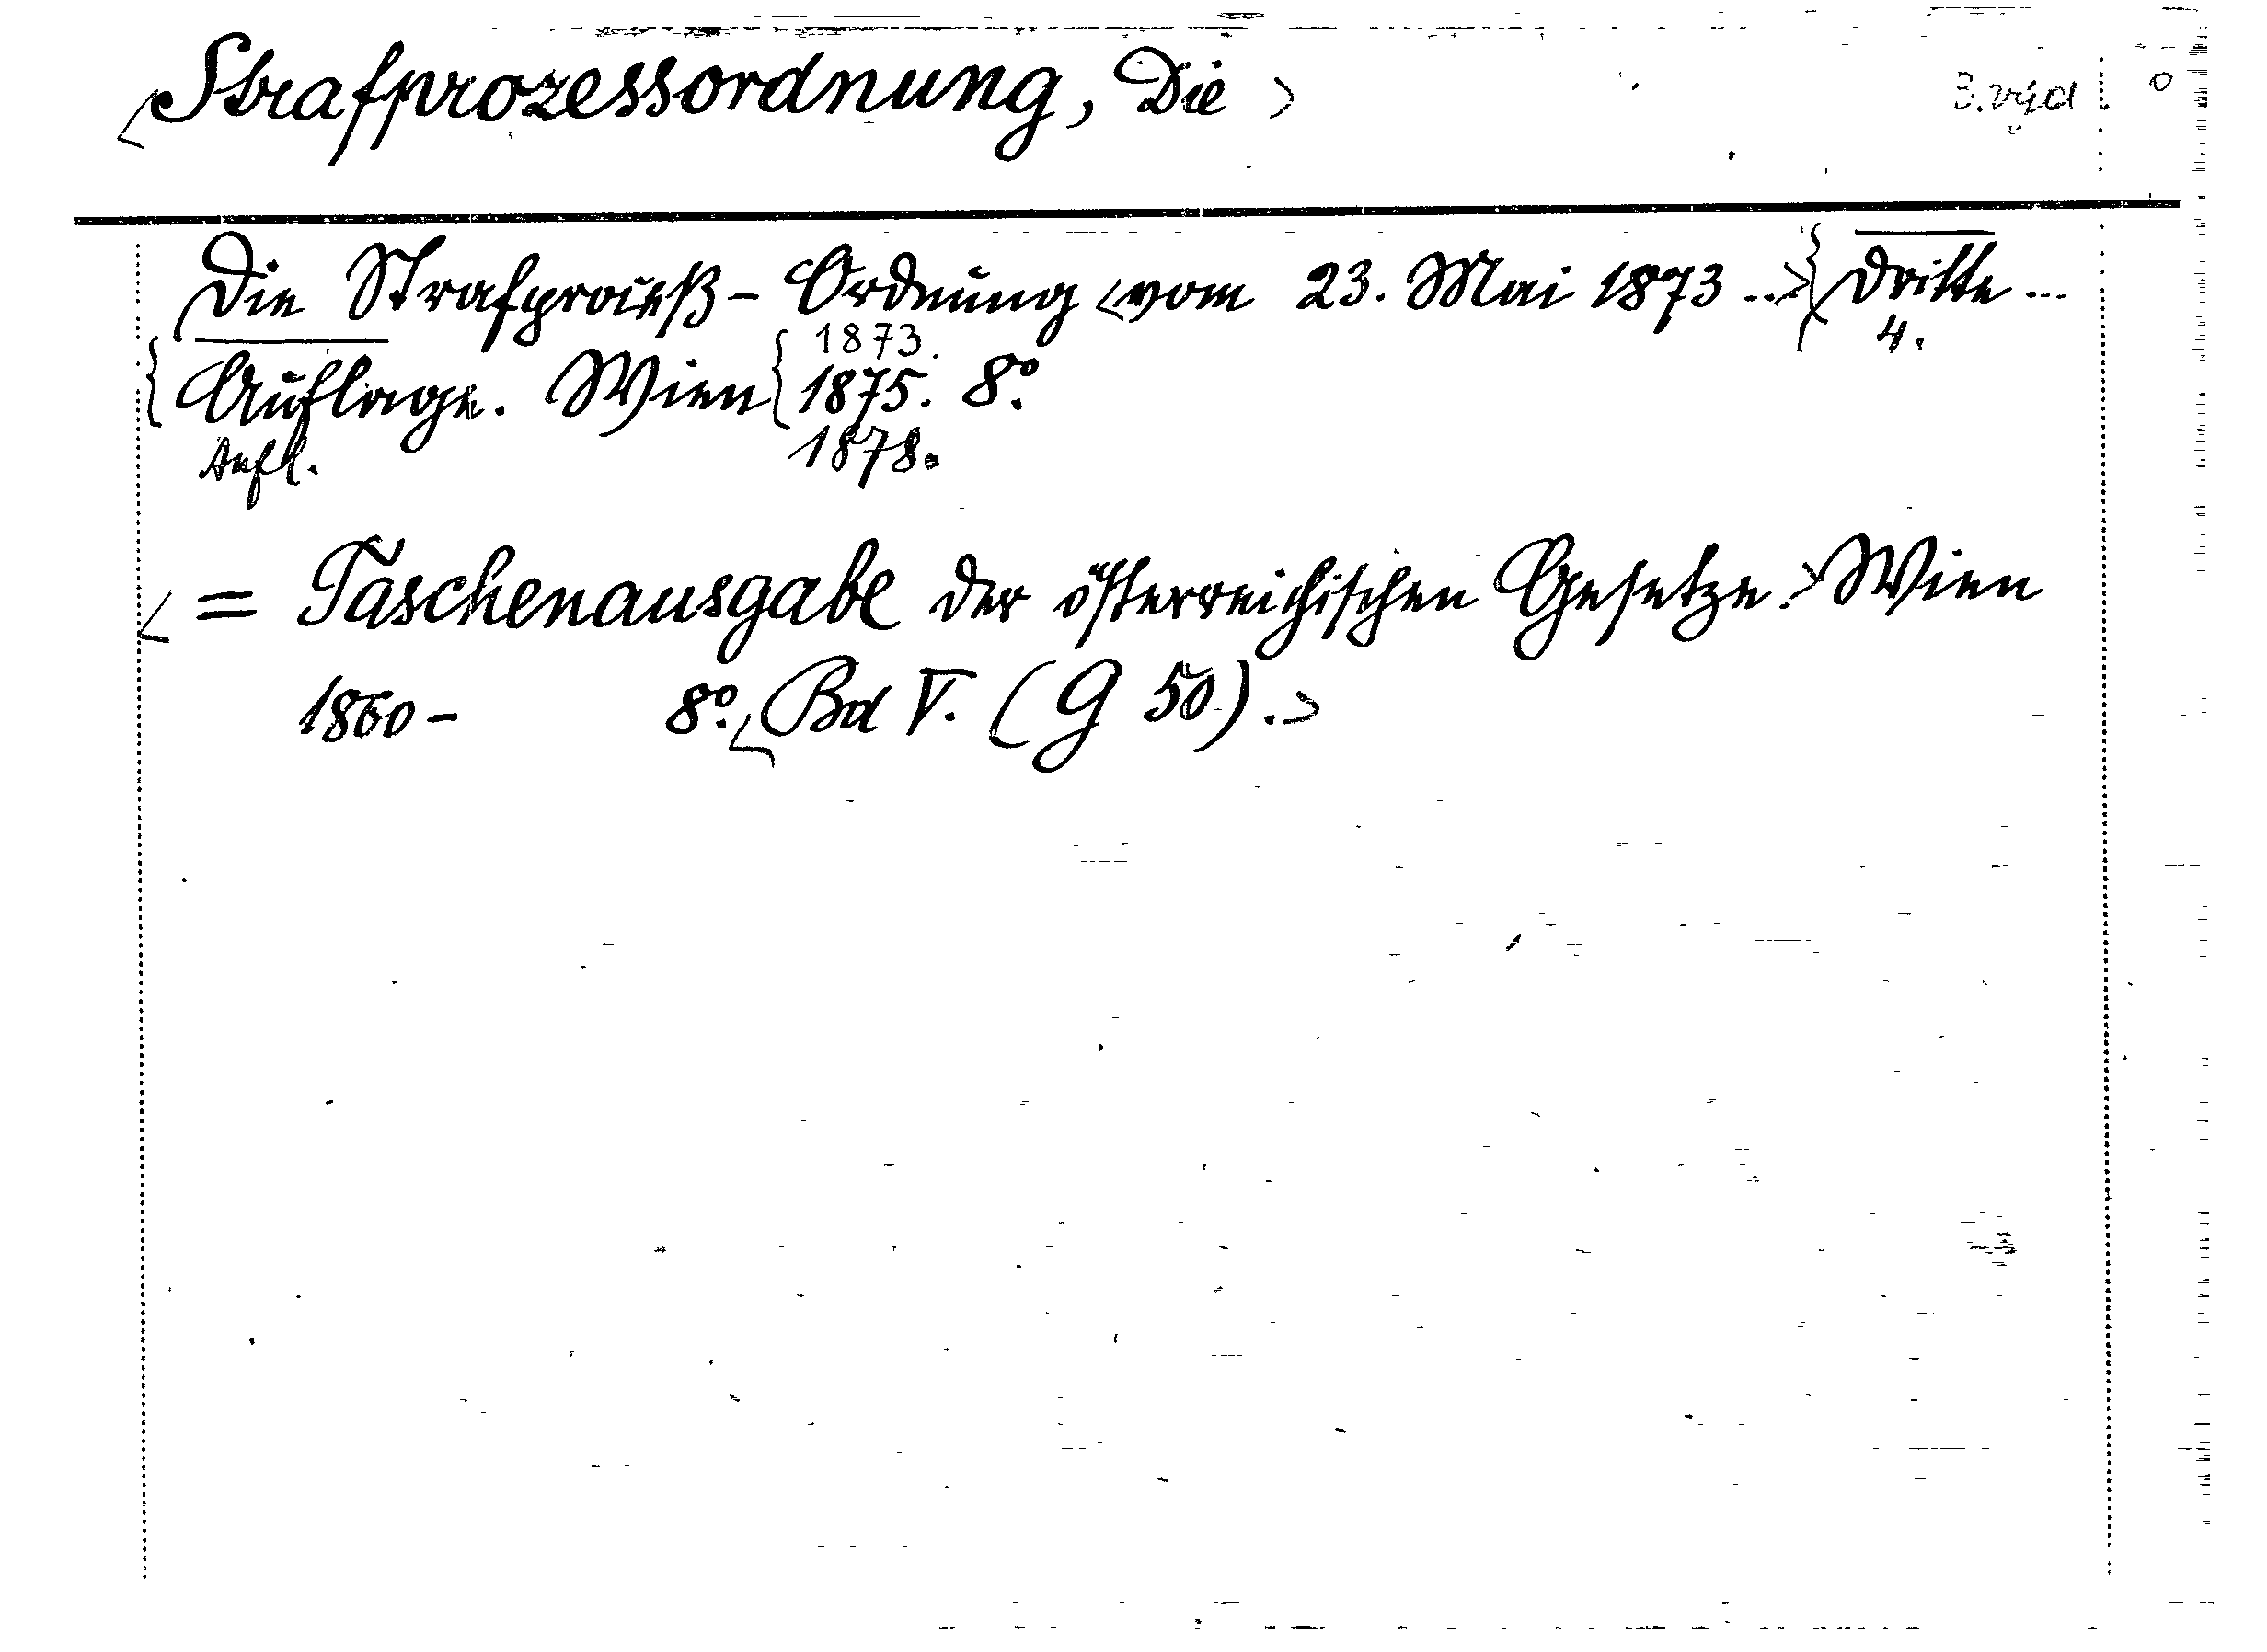 <Strafprozessordnung, Die>
3. vyd
Die Strafproceß-Ordnung <vom 23. Mai 1873 ...> { Dritte ...
4.
1873.
{ Auflage. Wien { 1875. 8°.
Aufl. 1878.
< = Taschenausgabe der österreichischen Gesetze.> Wien
1860- 8°. <Bd V. (G 50).>